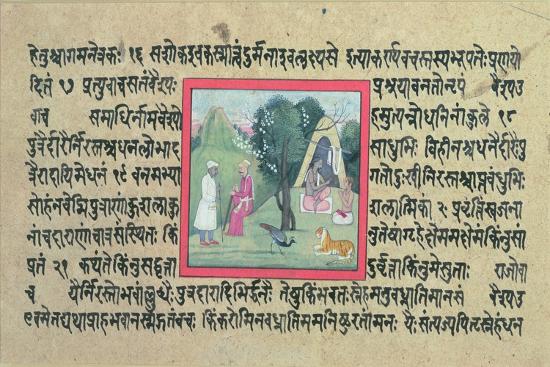 हेतुश्चागमनेत्रकः १६ सशोकइवकस्मात्त्वंदुर्मनाइवलक्ष्यसे इत्याकर्ण्यवचस्तस्यभूपतेःप्रणयो
दितं १७ प्रत्युवाचसतंवैश्यः प्रश्रयावनतोनृपं वैश्यउ
वाच समाधिर्नामवैश्यो हमुत्पन्नोधनिनांकुले १८
पुत्रैर्दारैर्निरस्तश्चधनलोभाद साधुभिः विहीनश्चधनैर्दारैःपु
त्रैरादायमेधनं १९ वनमभ्या गतोदुःखीनिरस्तश्चाप्तबंधुभिः
सोहंनवेद्मिपुत्राणांकुशलाकु शलात्मिकां २० प्रवृत्तिंस्वजना
नांचदाराणांचात्रसंस्थितः किं नुतेषांगृहेक्षेममक्षेमंकिंनुसां
प्रतं २१ कथंतेकिंनुसद्वृत्ता दुर्वृत्ताकिंनुमेसुताः राजोवा
च यैर्निरस्तोभवांल्लुब्धैःपुत्रदारादिभिर्धनैः तेषुकिंभवतःस्नेहमनुबध्नातिमानसं वैश्यउ
एवमेतद्यथाप्राहभवानस्मद्गतंवचः किंकरोमिनबध्नातिममनिष्ठुरतांमनः यैःसंत्यज्यपितृस्नेहंधन